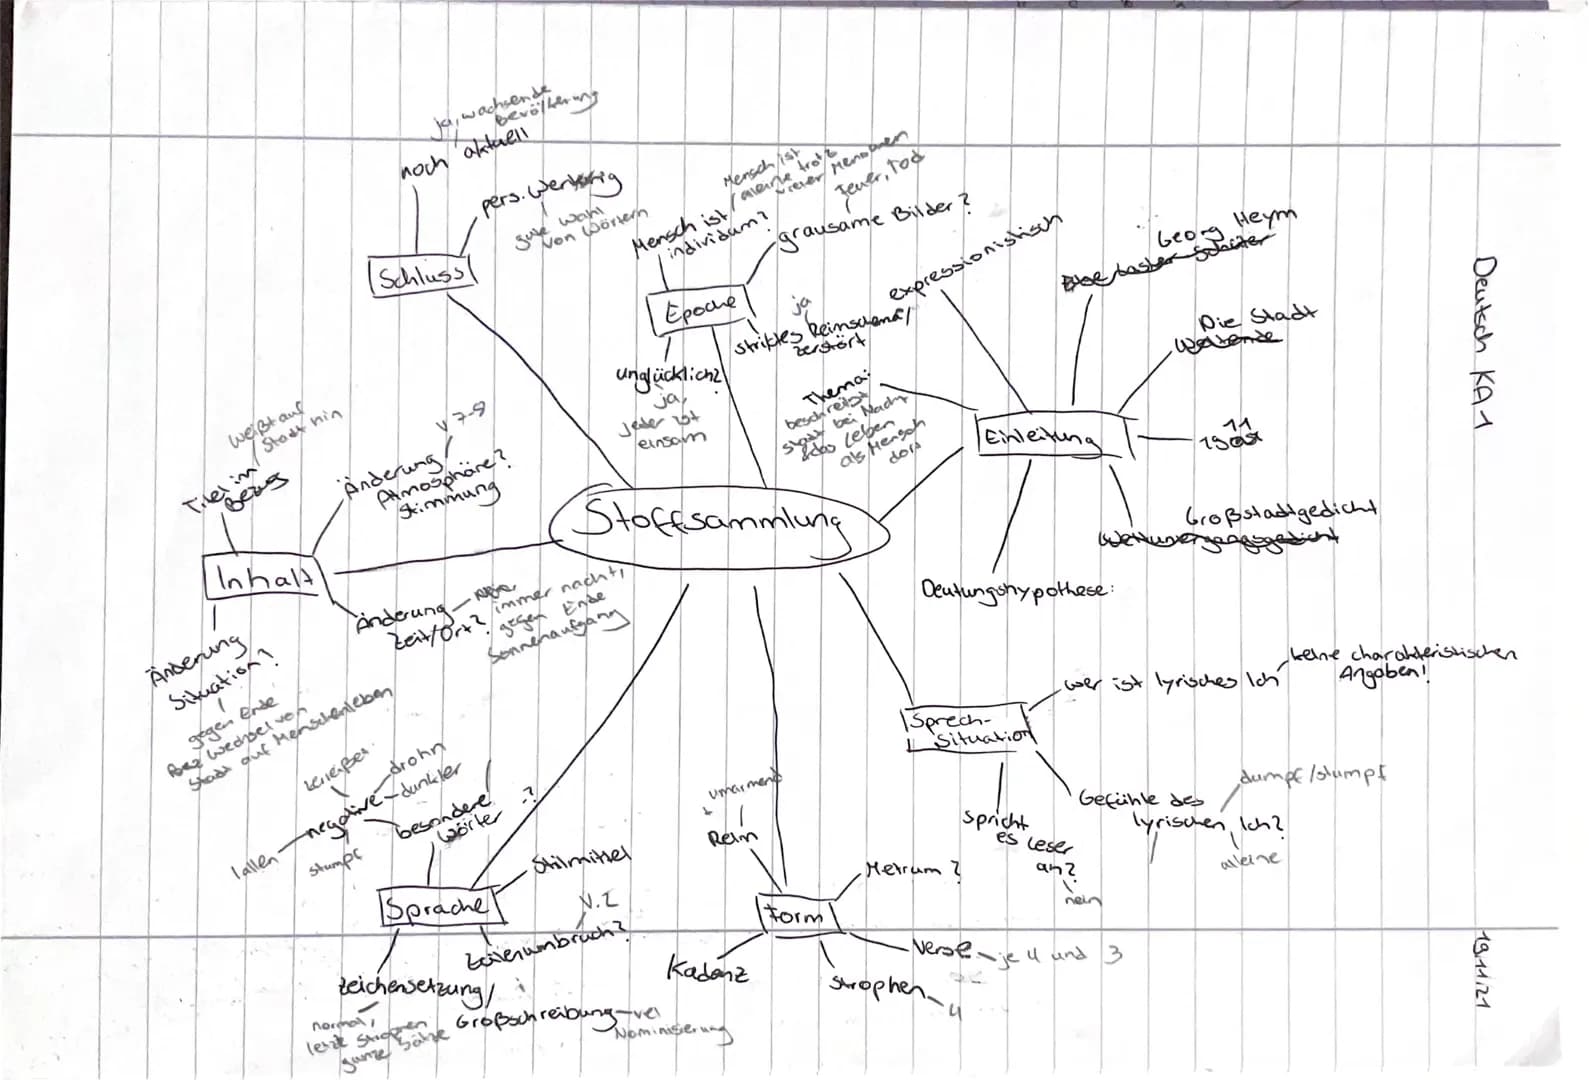 Deutsch KA1
19.11.21
Stoffsammlung
Schluss
noch aktuell
ja, wachsende
bevölkerung
pers. Wertung
gute Wahl
von Wörtern
Epoche
Mensch ist
individum?
Mensch ist
alleine trotz
vieler Menschen
grausame Bilder?
Feuer, Tod
striktes Reimschema/
zerstört
ja
unglücklich?
ja,
jeder ist
einsam
Einleitung
expressionistisch
Georg Heym
Die Stadt
Weltende
1911
Großstadtgedicht
Weltuntergangsgedicht
Deutungshypothese:
Thema:
beschreibt
Stadt bei Nacht
& das Leben
als Mensch
dort
Sprech-
Situation
wer ist lyrisches Ich
keine charakteristischen
Angaben!
Gefühle des
lyrischen Ich?
dumpf/stumpf
alleine
spricht
es Leser
an?
nein
Form
Reim
umarmend
Metrum?
Verse
je 4 und 3
Strophen
4
Kadenz
Sprache
besondere
Wörter -?
negative
kreißer
drohn
dunkler
lallen
stumpf
Stilmittel
Zeilenumbruch?
V. I
Zeichensetzung/
Großschreibung
normal,
letzte Strophen
ganze Sätze
Nominisierung
Inhalt
Titel in
Bezug
weißt auf
Stadt hin
Änderung
Atmosphäre?
Stimmung
V 7-8
Änderung
Zeit/Ort?
immer nacht,
gegen Ende
Sonnenaufgang
Änderung
Situation?
gegen Ende
Wechsel von
Stadt auf Menschenleben